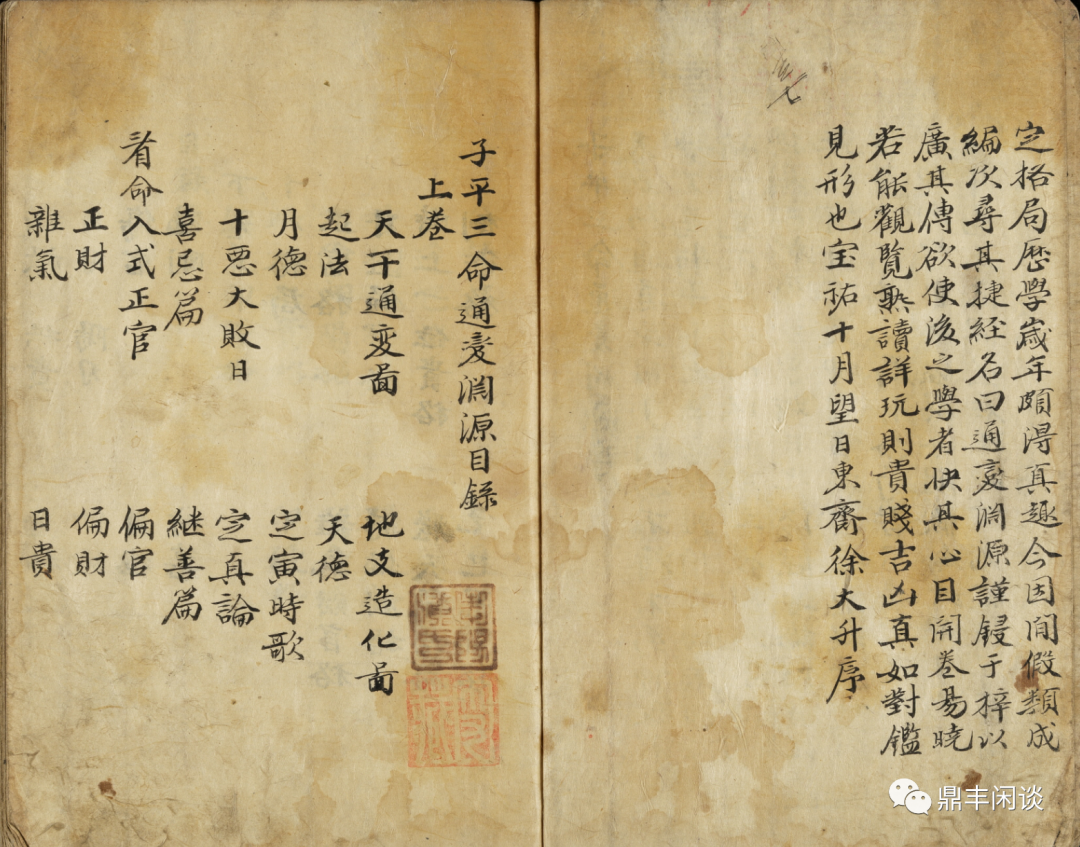 定格局歷學歲年頗得真趣今因閒假類成
編次尋其捷経名曰通変渊源謹鋟于梓以
廣其傳欲使後之學者快其心目開巻易曉
若能觀覽熟讀詳玩則貴賤吉凶真如對鑑
見形也宝祐十月望日東齋徐大升序
子平三命通変渊源目錄
上巻
天干通变啚 地支造化啚
起法 天德
月德 定寅時歌
十悪大敗日 定真論
喜忌篇 継善篇
看命入式正官 偏官
正財 偏財
雜氣 日貴
鼎丰闲谈